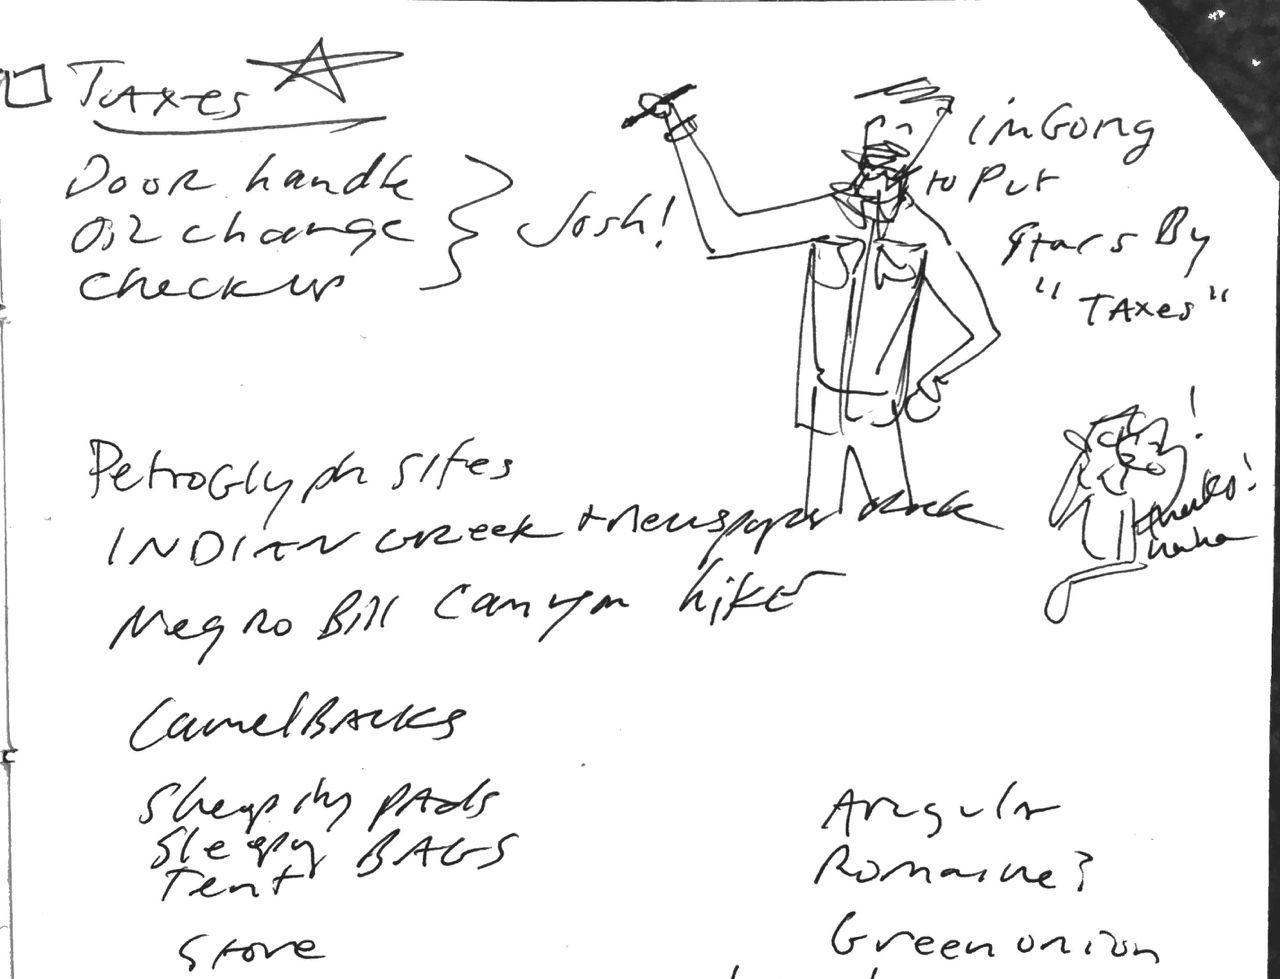 Taxes
Door handle
Oil change
Checkup
Josh!
im Gong
to Put
Stars By
"TAxes"
!
thanks!
haha
PetroGlyph sites
INDIAN Creek + Newspaper Rock
Negro Bill Canyon hike
CamelBACKs
Sleeping PAds
Sleepg BAGS
Tent
Stove
Arugula
Romaine?
Green onion